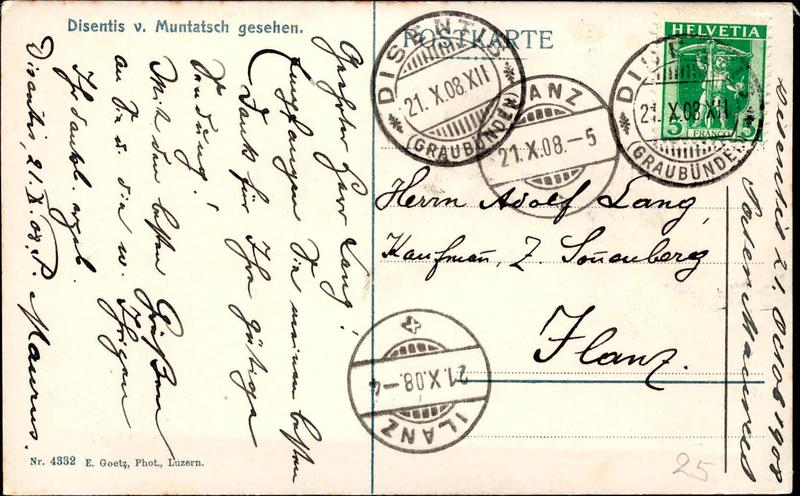 Disentis v. Muntatsch gesehen.
POSTKARTE
HELVETIA
5 FRANCO 5
DISENTIS
21.X.08.XII
(GRAUBÜNDEN)
DISENTIS
21.X.08.XII
(GRAUBÜNDEN)
ILANZ
21.X.08.-5
ILANZ
21.X.08.-4
Geehrter Herr Lang!
Empfangen Sie meinen besten
Dank für Ihre gütige
Sendung!
Mit den besten Grüßen
an Sie u. die w. Ihrigen
Ihr dankb. ergeb.
P. Maurus.
Disentis, 21.X.08.
Herrn Adolf Lang,
Kaufmañ, z. Soñenberg
Ilanz.
Disentis 21. October 1908
Pater Maurus
25
Nr. 4332 E. Goetz, Phot., Luzern.